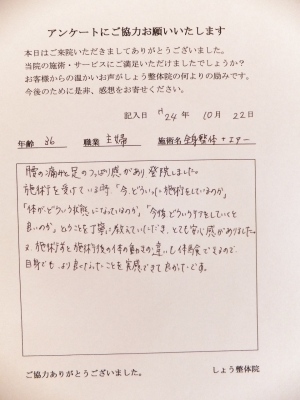 アンケートにご協力お願いいたします
本日はご来院いただきましてありがとうございました。
当院の施術・サービスにご満足いただけましたでしょうか？
お客様からの温かいお声がしょう整体院の何よりの励みです。
今後のために是非、感想をお寄せください。
記入日 H24年 10月 22日
年齢 36 職業 主婦 施術名 全身整体
腰の痛みと足のつっぱり感があり来院しました。
施術を受けている時、「今、どういった施術をしているのか」
「体がどういう状態になっているのか」「今後どういうケアをしていくと
良いのか」ということを丁寧に教えていただき、とても安心感がありました。
又、施術前と施術後の体の動きの違いも体感できるので、
自身でもより良くなったことを実感できて良かったです。
ご協力ありがとうございました。 しょう整体院